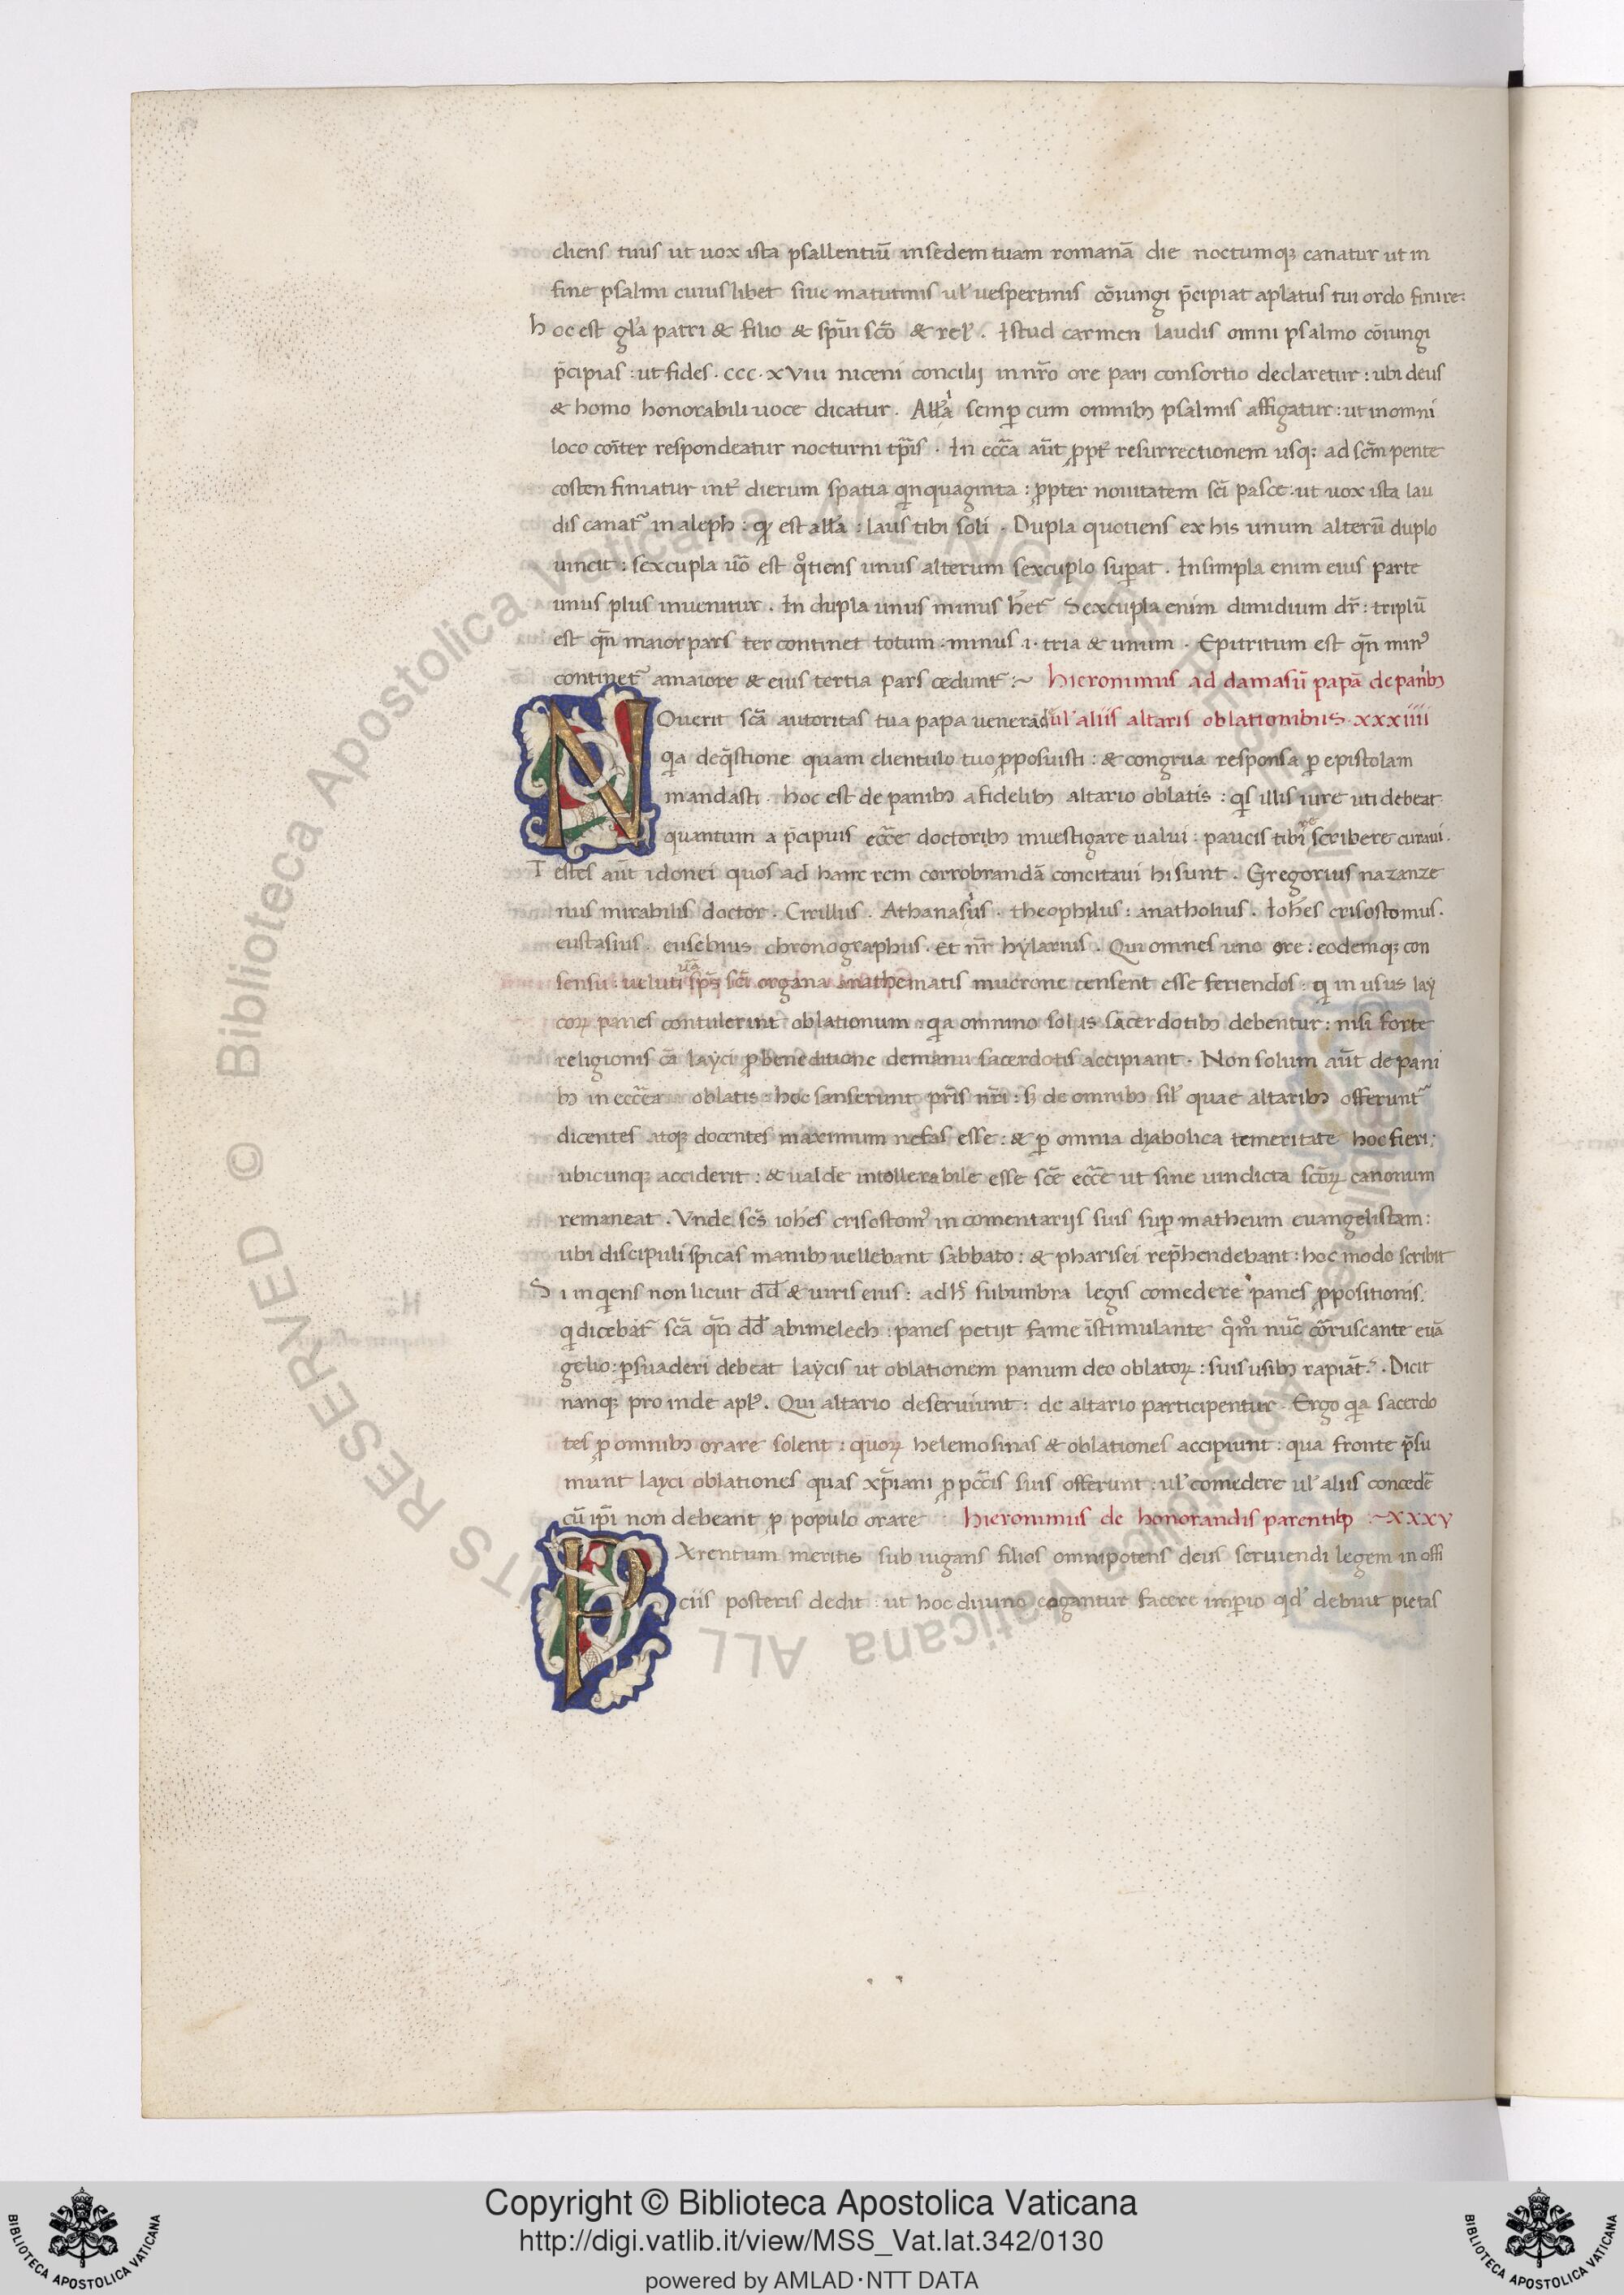 cliens tuus ut uox ista psallentiũ in sedem tuam romanã die noctumqꝫ canatur ut in
fine psalmi cuius libet siue matutinis ul̓ uespertinis cõiungi p̃cipiat aplatus tui ordo finire:
hoc est gl̃a patri & filio & sp̃ui sc̃o & rel̓. Istud carmen laudis omni psalmo cõiungi
p̃cipias: ut fides. ccc. xviii niceni concilij in nr̃o ore pari consortio declaretur: ubi deus
& homo honorabili uoce dicatur. All̃a semꝑ cum omnibꝫ psalmis affigatur: ut in omni
loco com̃iter respondeatur nocturni tp̃ris. In ecc̃a aũt ꝓpt̃ resurrectionem usqꝫ ad sc̃m pente
costen finiatur int̃ dierum spatia qinquaginta: ꝓpter nouitatem sc̃i pasce: ut uox ista lau
dis canat᷑ in aleph: qꝫ est all̃a: laus tibi soli. Dupla quotiens ex his unum alterũ duplo
uincit: sexcupla ũo est qͦtiens unus alterum sexcuplo suꝑat. In simpla enim eius parte
unus plus inuenitur. In dupla unus minus het᷑ Sexcupla enim dimidium dr̃: triplũ
est qñ maior pars ter continet totum. minus .i. tria & unum. Epitritum est qñ minꝰ
continet᷑ a maiore & eius tertia pars cedunt᷑ :~ Hieronimus ad damasũ papã de panibꝫ
NOuerit sc̃a autoritas tua papa uenerãde ul̓ aliis altaris oblationibus. xxxiiii
qa de q̃stione quam clientulo tuo ꝓposuisti: & congrua responsa ꝑ epistolam
mandasti. hoc est de panibꝫ a fidelibꝫ altario oblatis: qͥs illis iure uti debeat.
quantum a p̃cipuis ecc̃e doctoribꝫ inuestigare ualui: paucis tibi re scribere curaui.
Testes aũt idonei quos ad hanc rem corrobrandã concitaui hi sunt. Gregorius nazanze
nus mirabilis doctor. Cirillus. Athanasius. theophilus: anatholius. Ioh̃es crisostomus.
eustasius. eusebius chronographus. Et nr̃ hylarius. Qui omnes uno ore: eodemqꝫ con
sensu: ueluti ũa sp̃s sc̃i organa anathematis mucrone censent esse feriendos: qi in usus lay
coꝝ panes contulerint oblationum: qa omnino solis sacerdotibꝫ debentur: nisi forte
religionis cã layci ꝓ benedictione de manu sacerdotis accipiant. Non solum aũt de pani
bꝫ in ecc̃ea oblatis: hoc sanserunt pr̃is nr̃i: sꝫ de omnibꝫ sil̓ quae altaribꝫ offerunt᷑
dicentes atqꝫ docentes maximum nefas esse: & ꝑ omnia dyabolica temeritate hoc fieri:
ubicunqꝫ acciderit: & ualde intollerabile esse sc̃e ecc̃e ut sine uindicta sc̃oꝝ canonum
remaneat. Vnde sc̃s ioh̃es crisostomꝰ in comentarijs suis suꝑ matheum euangelistam:
ubi discipuli spicas manibꝫ uellebant sabbato: & pharisei rep̃hendebant: hoc modo scribit
Si inqiens non licuit dd̃ & uiris eius: adh̓ sub unbra legis comedere panes ꝓpositionis:
qi dicebat᷑ sc̃a qñ dd̃ abimelech: panes petijt fame ĩstimulante qͦmͦ nũc coruscante euã
gelio: ꝑsuaderi debeat laycis ut oblationem panum deo oblatoꝝ: suis usibꝫ rapiãt. Dicit
nanqꝫ proinde apl̓s. Qui altario deseruiunt: de altario participentur. Ergo qa sacerdo
tes ꝓ omnibꝫ orare solent: quoꝝ helemosinas & oblationes accipiunt: qua fronte p̃su
munt layci oblationes quas xp̃iani ꝓ pcc̃is suis offerunt: ul̓ comedere ul̓ aliis concedẽ
cũ ip̃i non debeant ꝓ populo orare Hieronimus de honorandis parentibꝫ :~ xxxv
PArentum meritis subiugans filios omnipotens deus seruiendi legem in offi
ciis posteris dedit: ut hoc diuino cogantur facere imꝑio qd̓ debuit pietas
© Biblioteca Apostolica Vaticana ALL RIGHTS RESERVED
Copyright © Biblioteca Apostolica Vaticana
http://digi.vatlib.it/view/MSS_Vat.lat.342/0130
powered by AMLAD·NTT DATA
BIBLIOTECA APOSTOLICA VATICANA
BIBLIOTECA APOSTOLICA VATICANA